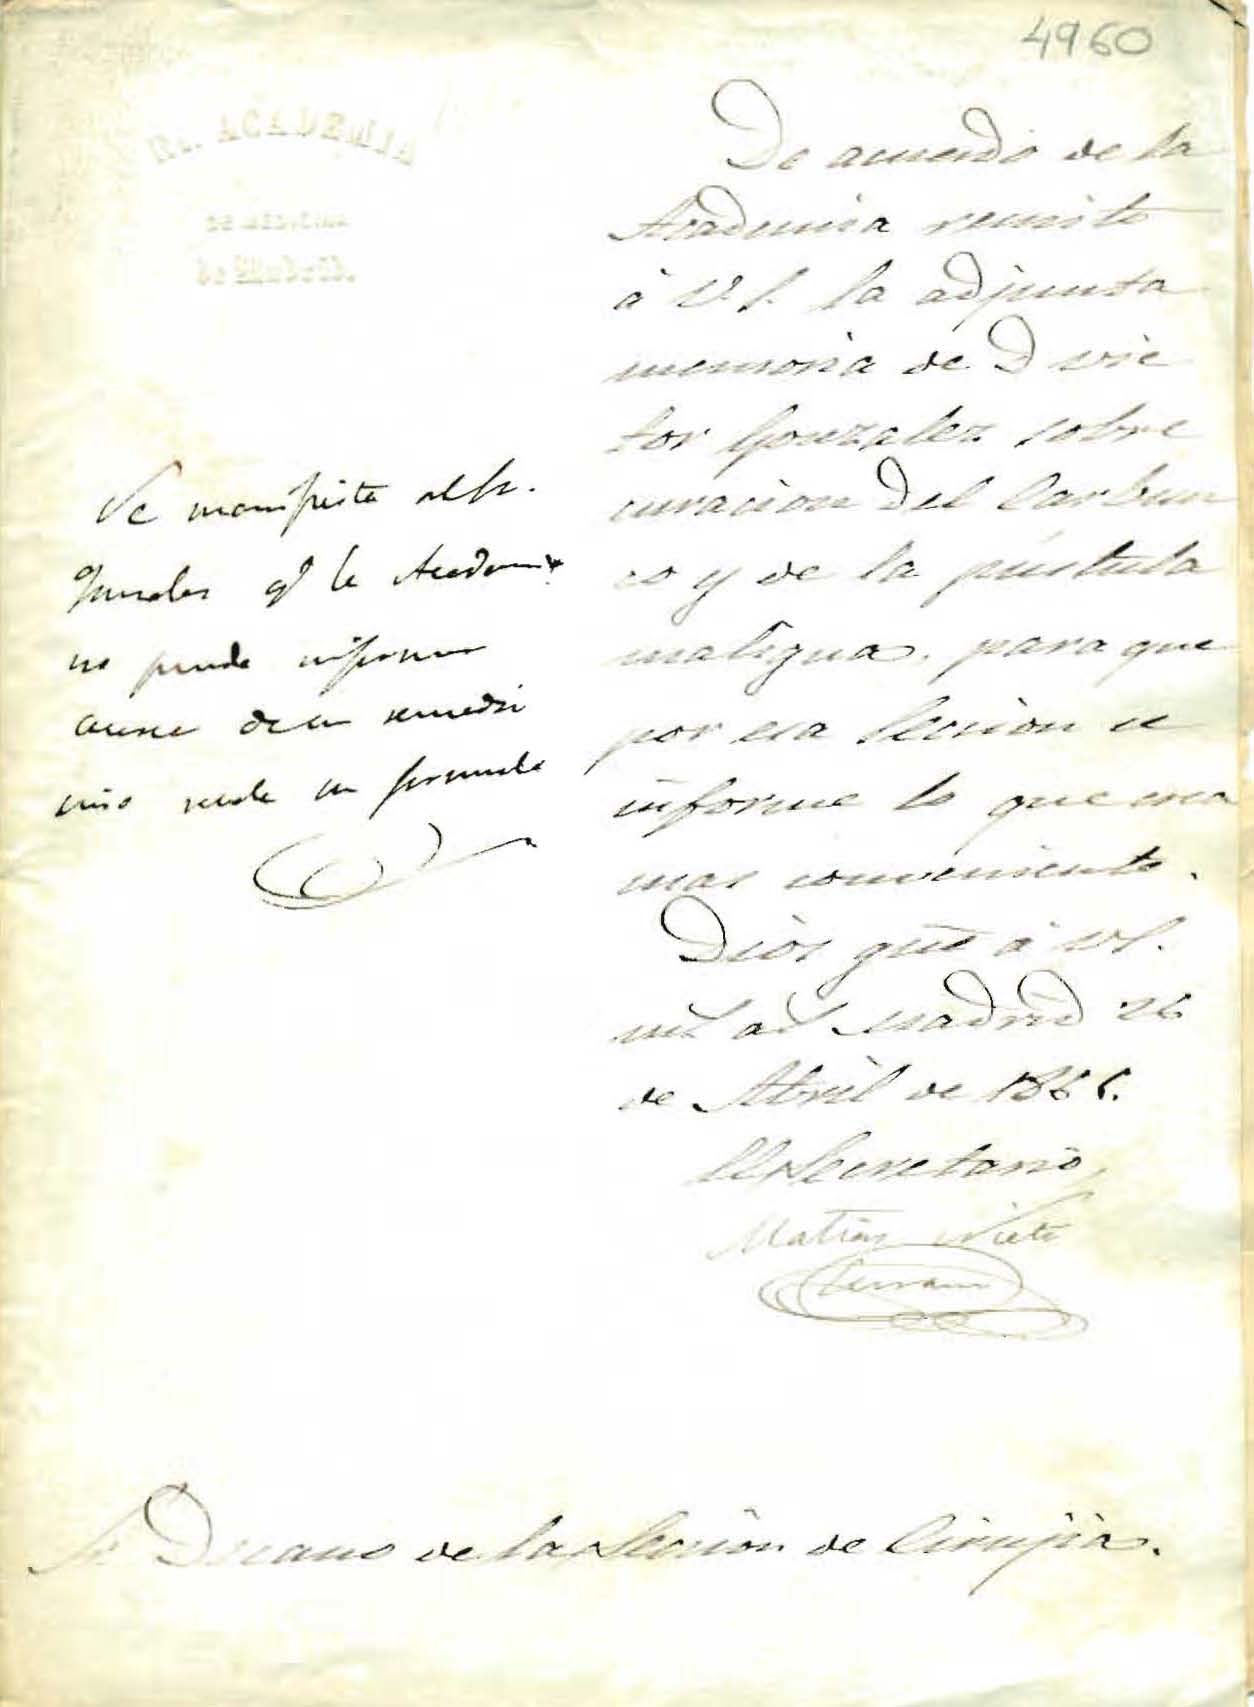 4960
RL. ACADEMIA
DE MEDICINA
de Madrid.
De acuerdo de la
Academia remito
á V.S. la adjunta
memoria de D Vic
tor Gonzalez sobre
curacion del Carbun
co y de la pústula
maligna, para que
por esa Seccion se
informe lo que crea
mas conveniente.
Dios gue á V.S.
ms as Madrid 26
de Abril de 1866.
El Secretario,
Matias Nieto
Serrano
Se manifieste al Sr.
Gonzalez q la Academia
no puede informar
acerca de un remedio
sino su formula
Sr Decano de la Seccion de Cirujia.